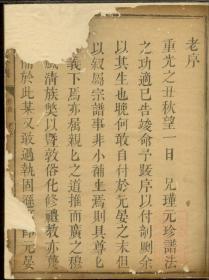 老序
重光之丑秋望一日 兄瑾元珍譜法
之功適已告竣命予跋序以付剞劂余
以其生也晚何敢自付於元晏之未但
以叙屬宗譜事非小補焉則其尊匕
義下焉亦屬親匕之道推而廣之穆
族清族奬以督敦俗化修禮教亦
於此某又敢過執固 元晏